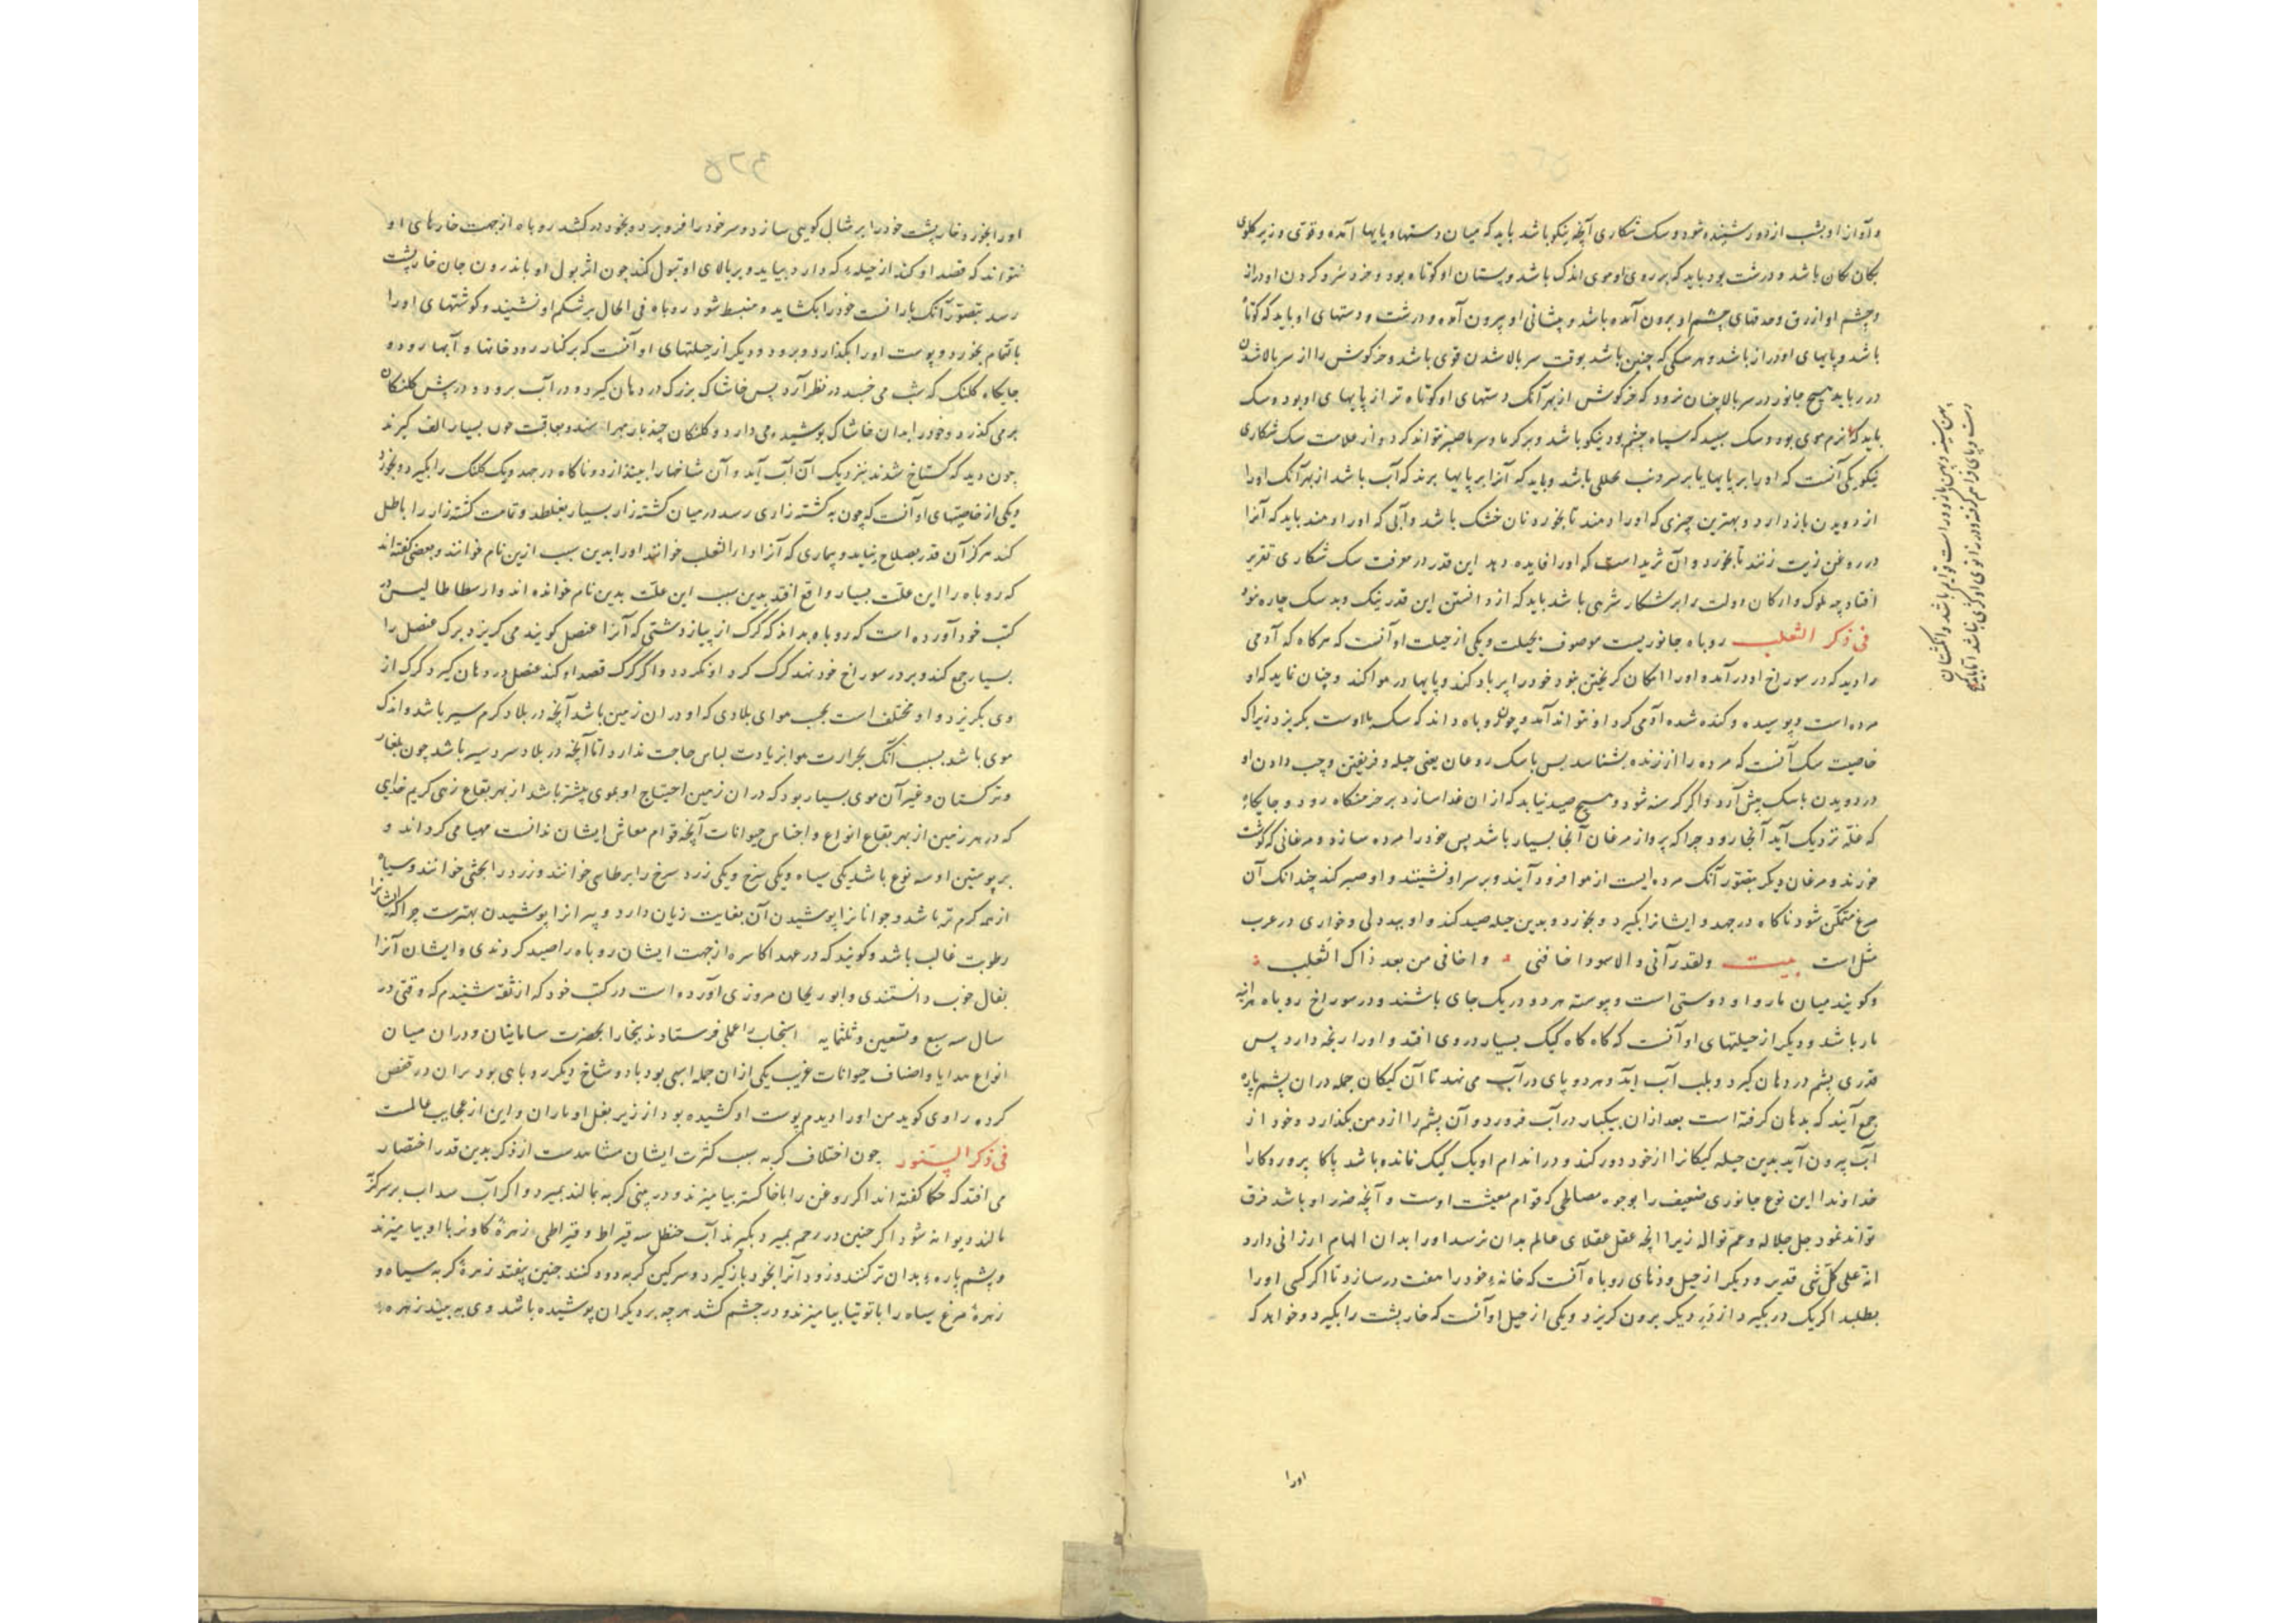 و آواز او بشب از دور شنیده شود و سک شکاری آنچه نیکو باشد باید که میان دستها و پایها آمده و قوی و زیر کلوی
باشد و درشت بود باید که بر روی او موی اندک باشد و پستان او کوتاه بود و خرد سر و کردن او دراز
و چشم او ازرق و حدقهای چشم او برون آمده باشد و پیشانی او بیرون آمده و درشت و دستهای او باید که کوتاه
باشد و پایهای او دراز باشد و هر سکی که چنین باشد بوقت سر بالا شدن قوی باشد و خرکوش را از سر بالا شدن
در رباید هیچ جانور در سر بالا چنان نرود که خرکوش از بهر آنک دستهای او کوتاه تر از پایهای او بود و سک
باید که نرم موی بود و سک سپید که سیاه چشم بود نیکو باشد و بر کرما و سرما صبر نتواند کرد و از علامت سک شکاری
نیکو یکی آنست که او را بر پایها یا بر سر دنب باشد و باید که آنرا از پایها برند که آب باشد از بهر آنک او را
از دویدن باز دارد و بهترین چیزی که او را دهند تا بخورد نان خشک باشد و آبی که او را دهند باید که آنرا
در روغن زیت زنند تا بخورد و آن ثرید است که او را فایده دهد این قدر در معرفت سک شکاری تقریر
افتاد چه ملوک و ارکان دولت را بر شکار شرهی باشد باید که از دانستن این قدر نیک و بد سک چاره نبود
فی ذکر الثعلب روباه جانوریست موصوف بحیلت و یکی از حیلت او آنست که هر کاه که آدمی
را دید که در سوراخ او در آمد و او را امکان کریختن نبود خود را پر باد کند و پایها در هوا کند و چنان نماید که او
مرده است و پوسیده و کنده شده آدمی کرد او نتواند آمد و چون روباه داند که سک بالاوست بکریزد زیرا که
خاصیت سک آنست که مرده را از زنده بشناسد پس با سک روغان یعنی حیله و فریفتن و چپ دادن او
در دویدن با سک پیش آرد و اکر کرسنه شود و هیچ صید نیابد که از آن غذا سازد بر خرمنکاه رود و جایکاه
که غله نزدیک آید آنجا رود چرا که پرواز مرغان آنجا بسیار باشد پس خود را مرده سازد و مرغانی که کوشت
خورند و مرغان دیکر بتصور آنک مرده ایست از هوا فرود آیند و بر سر او نشینند و او صبر کند چندانک آن
مرغ متمکن شود ناکاه در جهد و ایشانرا بکیرد و بخورد و بدین حیله صید کند و او ببد دلی و خواری در عرب
مثل است بیت ولقد رآنی والاسود اخافنی و اخافی من بعد ذاک الثعلب
و کویند میان مار و او دوستی است و پیوسته هر دو در یک جای باشند و در سوراخ روباه هر آینه
مار باشد و دیکر از حیلتهای او آنست که کاه کاه کیک بسیار در وی افتد و او را رنجه دارد پس
قدری پشم در دهان کیرد و بلب آب آید و هر دو پای در آب می نهد تا آن کیکان جمله در آن پشم پاره
جمع آیند که بدهان کرفته است بعد از آن بیکبار در آب فرو رود و آن پشم را از دهن بکذارد و خود از
آب بیرون آید بدین حیله کیکانرا از خود دور کند و در اندام او یک کیک نمانده باشد پاکا پروردکارا
خداوندا این نوع جانوری ضعیف را بوجوه مصالحی که قوام معیشت اوست و آنچه ضرر او باشد فرق
تواند نمود جل جلاله و عم نواله زیرا آنچه عقل عقلای عالم بدان نرسد او را بدان الهام ارزانی دارد
انه علی کل شی قدیر و دیکر از حیل و دهای روباه آنست که خانهٔ خود را هفت در سازد تا اکر کسی او را
بطلبد اکر یک در بکیرد از در دیکر برون کریزد و یکی از حیل او آنست که خارپشت را بکیرد و خواهد که
پهن سینه و پهن بازو و راست قوایم باشد و انکشتان
دست و پای فراهم کرفته و در زانوی او کژی نباشد
اورا
۳۲۵
او را بخورد خارپشت خود را بر مثال کویی سازد و سر خود را فرو برد و بخود در کشد روباه از جهت خارهای او
نتواند که قصد او کند از حیله که دارد بیاید و بر بالای او بول کند چون اثر بول او باندرون جان خارپشت
رسد بتصور آنک باران است خود را بکشاید و منبسط شود روباه فی الحال بر شکم او نشیند و کوشتهای او را
باتمام بخورد و پوست او را بکذارد و برود و دیکر از حیلتهای او آنست که بر کنار رودخانها و آبها رود و
جایکاه کلنک که شب می خسبد در نظر آرد پس خاشاک بزرک در دهان کیرد و در آب برود و در پیش کلنکان
بر می کذرد و خود را بدان خاشاک پوشیده می دارد و کلنکان چند بار بهراسند و بعاقبت چون بسیار الف کیرند
چون دید که کستاخ شدند بنزدیک آن آب آید و آن شاخها را بیندازد و ناکاه در جهد و یک کلنک را بکیرد و بخورد
و یکی از خاصیتهای او آنست که چون به کشته زاری رسد در میان کشته زار بسیار بغلطد و تمامت کشته زار را باطل
کند هرکز آن قدر بصلاح نیاید و بیماری که آنرا داء الثعلب خوانند او را بدین سبب ازین نام خوانند و بعضی کفته اند
که روباه را این علت بسیار واقع افتد بدین سبب این علت بدین نام خوانده اند و ارسطاطالیس در
کتب خود آورده است که روباه بداند که کرک از پیاز دشتی که آنرا عنصل کویند می کریزد برک عنصل را
بسیار جمع کند و بر در سوراخ خود نهد کرک کرد او نکردد و اکر کرک قصد او کند عنصل در دهان کیرد کرک از
وی بکریزد و او مختلف است بحسب هوای بلادی که او در آن زمین باشد آنچه در بلاد کرم سیر باشد و اندک
موی باشد بسبب آنک بحرارت هوا بزیادت لباس حاجت ندارد اما آنچه در بلاد سردسیر باشد چون بلغار
و ترکستان و غیر آن موی بسیار بود که در آن زمین احتیاج او بموی بیشتر باشد از بهر بقاع زهی کریم خدایی
که در هر زمین از بهر بقاع انواع و اجناس حیوانات آنچه قوام معاش ایشان دانست مهیا می کرداند و
بر پوستین او سه نوع باشد یکی سیاه و یکی سرخ و یکی زرد سرخ را برطاسی خوانند و زرد را خوانند و سیاه
از همه کرم تر باشد و جوانانرا پوشیدن آن بغایت زیان دارد و پیرانرا پوشیدن بهترست چرا که ایشانرا
رطوبت غالب باشد و کویند که در عهد اکاسره از جهت ایشان روباه را صید کردندی و ایشان آنرا
بفال خوب دانستندی و ابوریحان مروزی آورده است در کتب خود که از ثقه شنیدم که وقتی در
سال سه سبع و تسعین و ثلثمایه را فرستادند ببخارا بحضرت سامانیان و در آن میان
انواع هدایا و اصناف حیوانات غریب یکی از آن جمله اسبی بود با دو شاخ دیکر روباهی بود پران در قفص
کرده راوی کوید من او را دیدم پوست او کشیده بود از زیر بغل او تا ران و این از عجایب عالمست
فی ذکر السنور چون اختلاف کربه سبب کثرت ایشان مشاهدست از ذکر بدین قدر اختصار
می افتد که حکما کفته اند اکر روغن را با خاکستر بیامیزند و در بینی کربه بمالند بمیرد و اکر آب سداب بر سر کربه
مالند دیوانه شود اکر جنین در رحم بمیرد بکیرند آب حنظل سه قیراط و قیراطی زهرهٔ کاو نر با او بیامیزند
و پشم پاره بدان تر کنند و زود آنرا بخود باز کیرد و سرکین کربه دود کنند جنین بیفتد زهرهٔ کربه سیاه و
زهرهٔ مرغ سیاه را با توتیا بیامیزند و در چشم کشد هرچه بر دیکران پوشیده باشد وی به بیند زهره